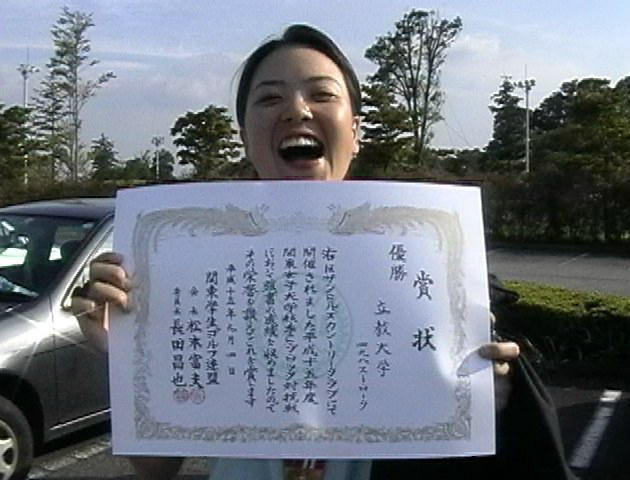 賞状
優勝
立教大学
四九八ストローク
右はザンビルズカントリークラブにて
開催されました平成十五年度
関東女子大学秋季Bブロック対抗戦
において頭書の成績を収めましたので
その栄誉を讃えこれを賞します
平成十五年九月四日
関東学生ゴルフ連盟
会長 松本富夫
委員長 長田昌也